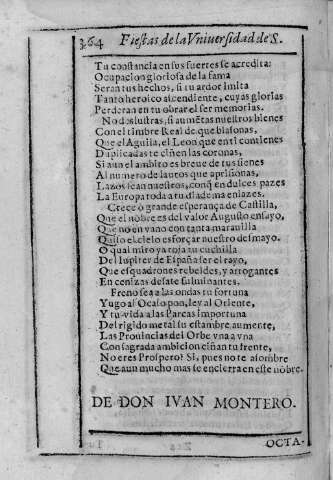 364 Fiestas de la Vniuersidad de S.
Tu constancia en sus suertes se acredita:
Ocupacion gloriosa de la fama
Seran tus hechos, si tu ardor imita
Tanto heroico ascendiente, cuyas glorias
Perderan en tu obrar el ser memorias.
No deslustras, si aumẽtas nuestros bienes
Con el timbre Real de que blasonas,
Que el Aguila, el Leon que en ti contienes
Duplicadas te ciñen las coronas,
Si aun el ambito es breue de tus sienes
Al numero de lauros que aprisionas,
Lazos sean nuestros, conq̃ en dulces pazes
La Europa toda a tu diadema enlazes.
Crece ò grande esperança de Castilla,
Que el nõbre es del valor Augusto ensayo,
Que no en vano con tanta marauilla
Quiso el cielo esforçar nuestro desmayo.
O qual miro ya roja tu cuchilla
Del Iupiter de España ser el rayo,
Que esquadrones rebeldes, y arrogantes
En cenizas desate fulminantes.
Freno sea a las ondas tu fortuna
Yugo al Ocaso pon, ley al Oriente,
Y tu vida a las Parcas importuna
Del rigido metal su estambre aumente,
Las Prouincias del Orbe vna a vna
Consagrada ambicion ciñan tu frente,
No eres Prospero? Si, pues no te assombre
Que aun mucho mas se encierra en este nõbre.
DE DON IVAN MONTERO.
OCTA-